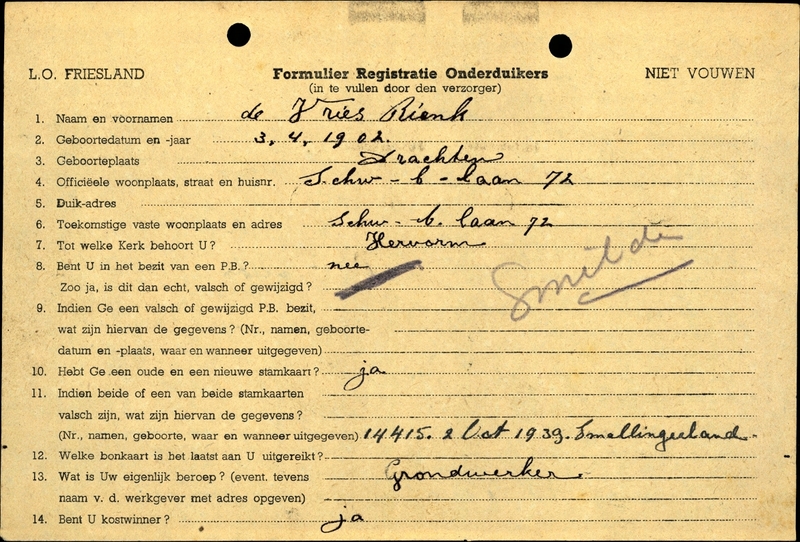 L.O. FRIESLAND Formulier Registratie Onderduikers NIET VOUWEN
(in te vullen door den verzorger)
1. Naam en voornamen de Vries Rienk
2. Geboortedatum en -jaar 3, 4, 1902.
3. Geboorteplaats Drachten
4. Officiëele woonplaats, straat en huisnr. Schw - b - laan 72
5. Duik-adres
6. Toekomstige vaste woonplaats en adres Schw - b. laan 72
7. Tot welke Kerk behoort U? Hervorm
8. Bent U in het bezit van een P.B.? nee
Zoo ja, is dit dan echt, valsch of gewijzigd?
Smilde
9. Indien Ge een valsch of gewijzigd P.B. bezit,
wat zijn hiervan de gegevens? (Nr., namen, geboorte-
datum en -plaats, waar en wanneer uitgegeven)
10. Hebt Ge een oude en een nieuwe stamkaart? ja
11. Indien beide of een van beide stamkaarten
valsch zijn, wat zijn hiervan de gegevens?
(Nr., namen, geboorte, waar en wanneer uitgegeven) 14415. 2 Oct 1939. Smallingerland
12. Welke bonkaart is het laatst aan U uitgereikt?
13. Wat is Uw eigenlijk beroep? (event. tevens Grondwerker
naam v. d. werkgever met adres opgeven)
14. Bent U kostwinner? ja